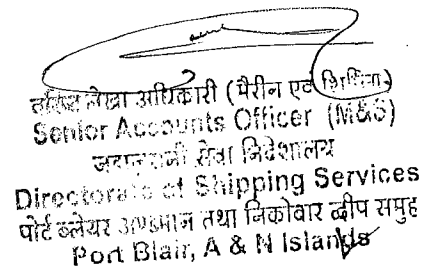 वरिष्ठ लेखा अधिकारी (मैरीन एवं शिपिंग)
Senior Accounts Officer (M&S)
जहाजरानी सेवा निदेशालय
Directorate of Shipping Services
पोर्ट ब्लेयर अण्डमान तथा निकोबार द्वीप समुह
Port Blair, A & N Islands